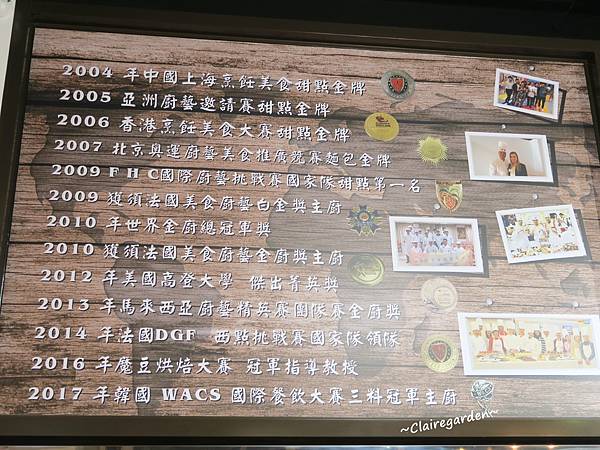 2004 年中國上海烹飪美食甜點金牌
2005 亞洲廚藝邀請賽甜點金牌
2006 香港烹飪美食大賽甜點金牌
2007 北京奧運廚藝美食推廣競賽麵包金牌
2009 FHC國際廚藝挑戰賽國家隊甜點第一名
2009 獲頒法國美食廚藝白金獎主廚
2010 年世界金廚總冠軍獎
2010 獲頒法國美食廚藝金廚獎主廚
2012 年美國高登大學 傑出菁英獎
2013 年馬來西亞廚藝精英賽團隊賽金廚獎
2014 年法國DGF 西點挑戰賽國家隊領隊
2016 年魔豆烘焙大賽 冠軍指導教授
2017 年韓國 WACS 國際餐飲大賽三料冠軍主廚
~Clairegarden~